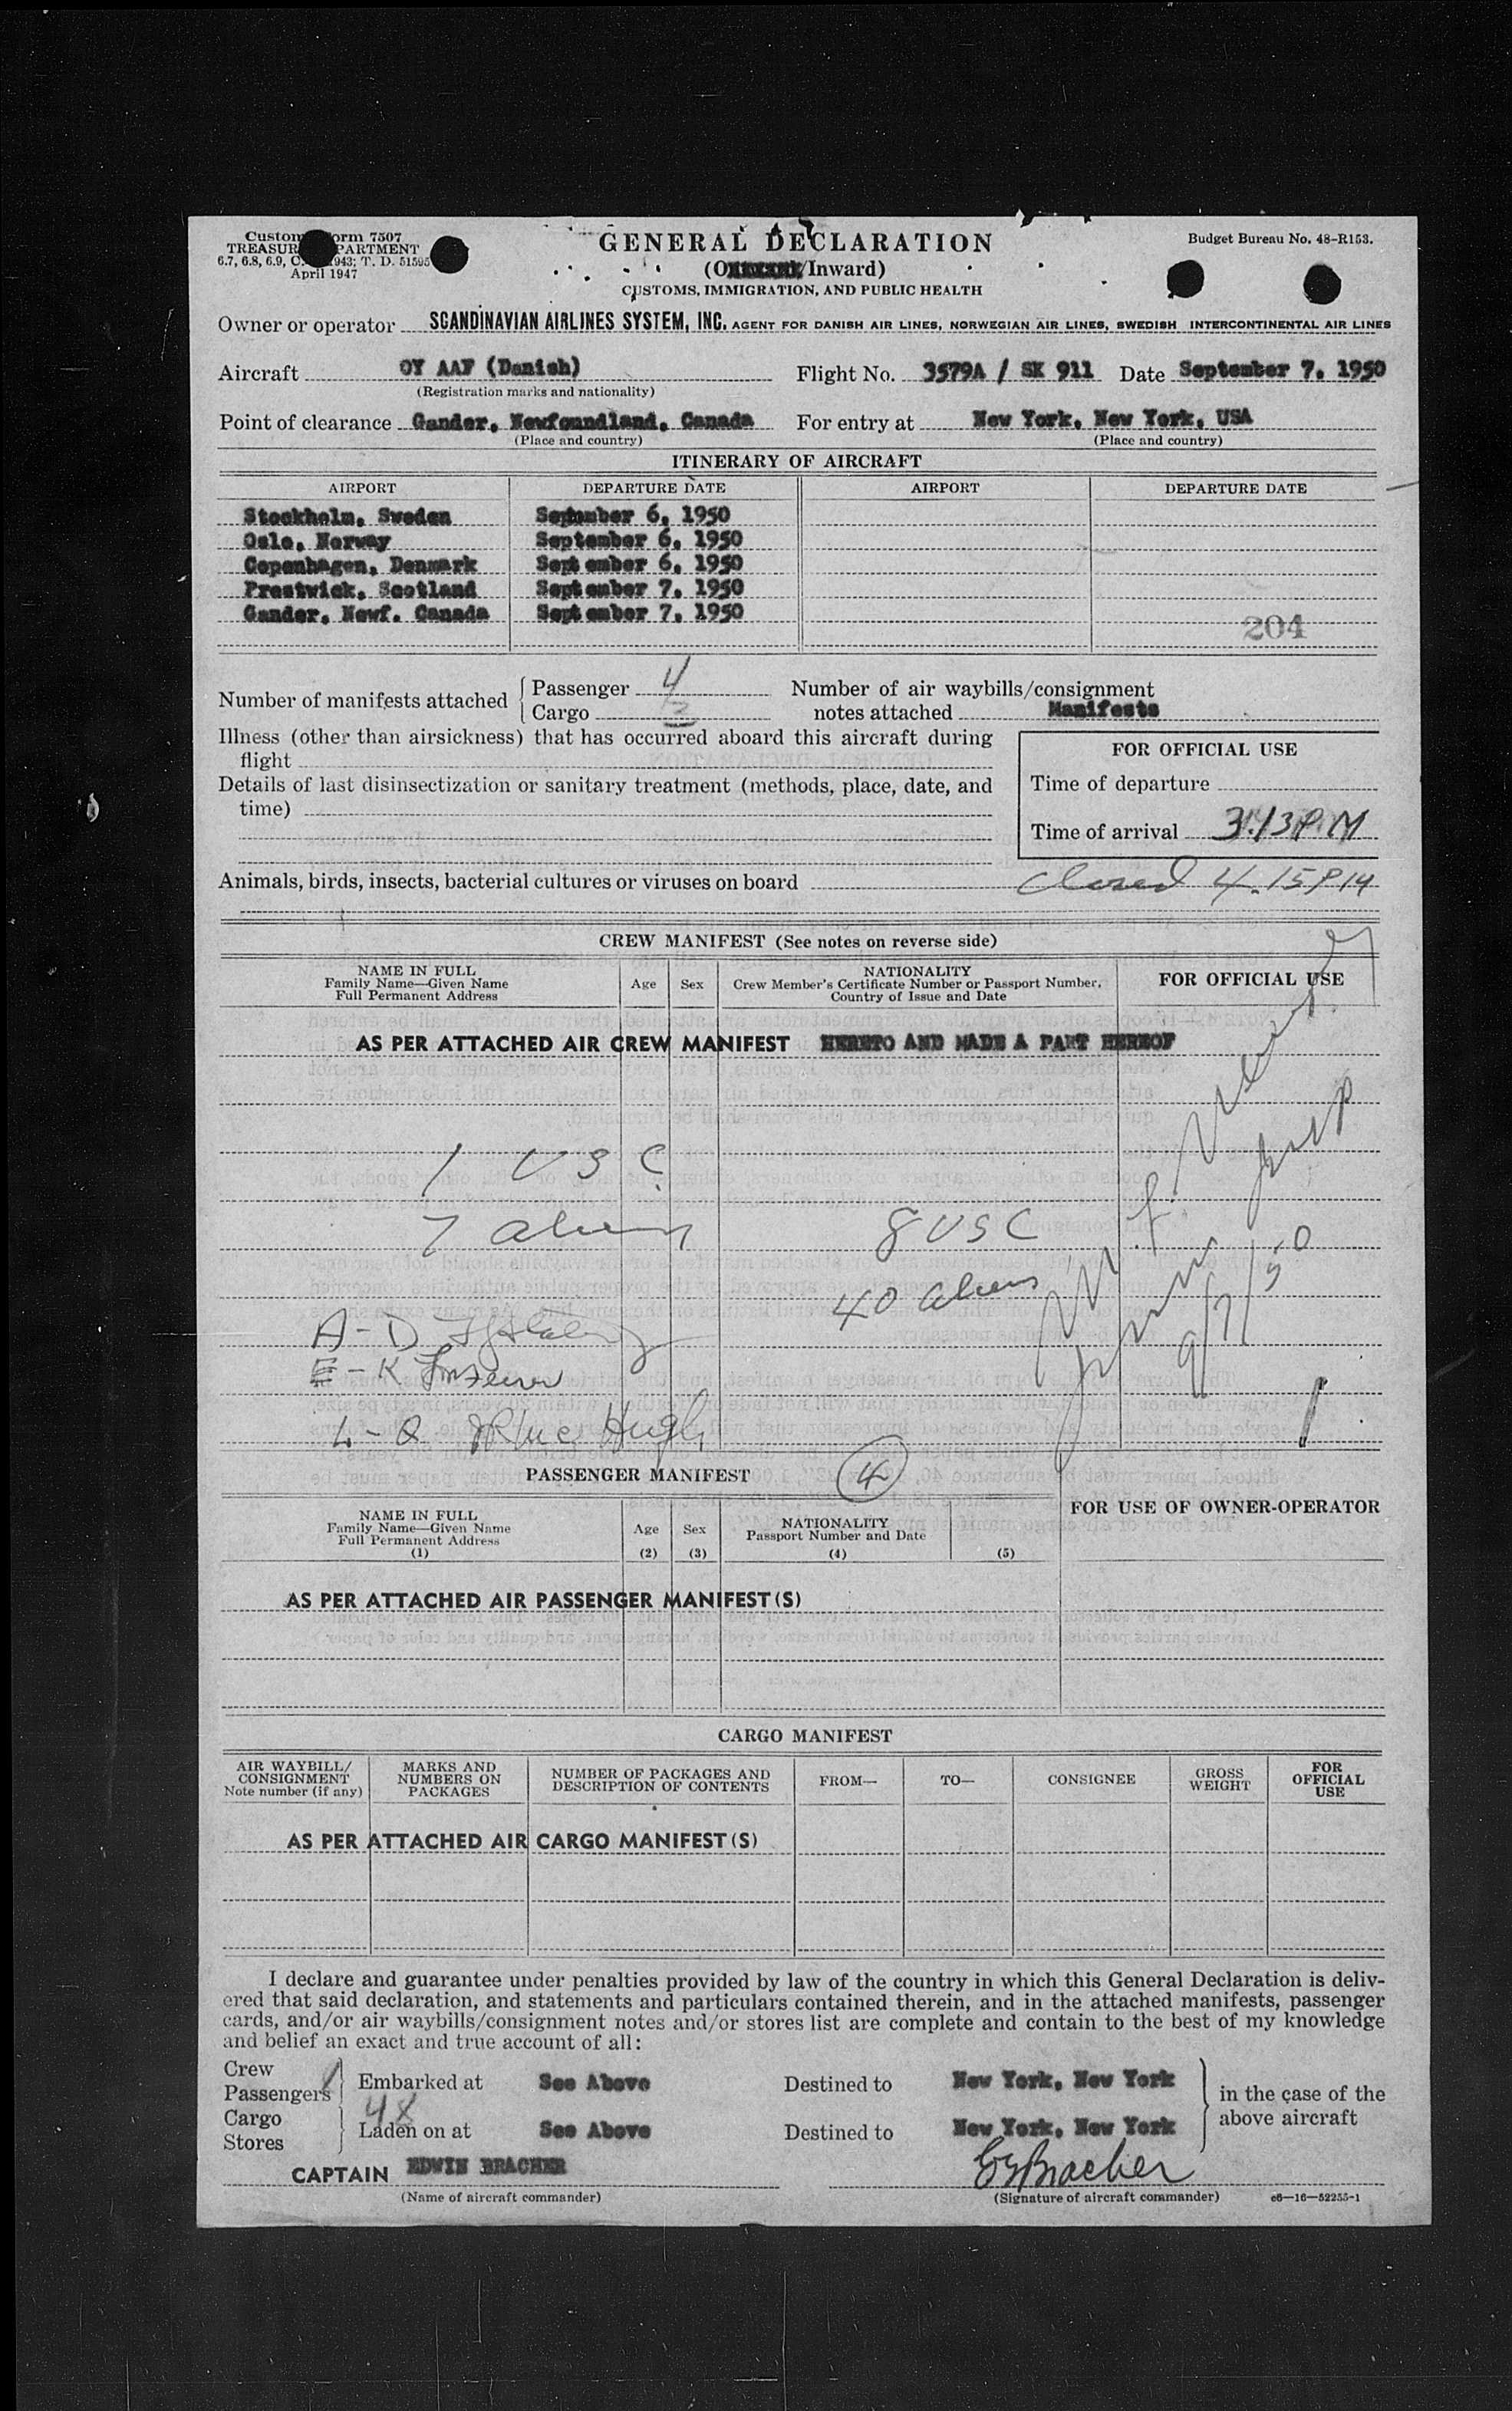 Customs Form 7507
TREASURY DEPARTMENT
6.7, 6.8, 6.9, C. 1943; T. D. 51595
April 1947
GENERAL DECLARATION
(O/Inward)
CUSTOMS, IMMIGRATION, AND PUBLIC HEALTH
Budget Bureau No. 48-R153.
Owner or operator SCANDINAVIAN AIRLINES SYSTEM, INC. AGENT FOR DANISH AIR LINES, NORWEGIAN AIR LINES, SWEDISH INTERCONTINENTAL AIR LINES
Aircraft OY AAF (Danish) Flight No. 3579A / SK 911 Date September 7, 1950
(Registration marks and nationality)
Point of clearance Gander, Newfoundland, Canada For entry at New York, New York, USA
(Place and country) (Place and country)
ITINERARY OF AIRCRAFT
AIRPORT DEPARTURE DATE AIRPORT DEPARTURE DATE
Stockholm, Sweden September 6, 1950
Oslo, Norway September 6, 1950
Copenhagen, Denmark September 6, 1950
Prestwick, Scotland September 7, 1950
Gander, Newf. Canada September 7, 1950
204
Number of manifests attached Passenger 4 Number of air waybills/consignment
Cargo notes attached Manifests
Illness (other than airsickness) that has occurred aboard this aircraft during
flight
Details of last disinsectization or sanitary treatment (methods, place, date, and
time)
FOR OFFICIAL USE
Time of departure
Time of arrival 3:13 P.M
Animals, birds, insects, bacterial cultures or viruses on board Closed 4.15 PM
CREW MANIFEST (See notes on reverse side)
NAME IN FULL
Family Name—Given Name
Full Permanent Address
Age Sex
NATIONALITY
Crew Member's Certificate Number or Passport Number,
Country of Issue and Date
FOR OFFICIAL USE
AS PER ATTACHED AIR CREW MANIFEST HERETO AND MADE A PART HEREOF
1 USC
7 alien
8 USC
40 aliens
9/7/50
A-D
E-K
L-Q
PASSENGER MANIFEST 4
NAME IN FULL
Family Name—Given Name
Full Permanent Address
(1)
Age
(2)
Sex
(3)
NATIONALITY
Passport Number and Date
(4) (5)
FOR USE OF OWNER-OPERATOR
AS PER ATTACHED AIR PASSENGER MANIFEST(S)
CARGO MANIFEST
AIR WAYBILL/
CONSIGNMENT
Note number (if any)
MARKS AND
NUMBERS ON
PACKAGES
NUMBER OF PACKAGES AND
DESCRIPTION OF CONTENTS
FROM—
TO—
CONSIGNEE
GROSS
WEIGHT
FOR
OFFICIAL
USE
AS PER ATTACHED AIR CARGO MANIFEST(S)
I declare and guarantee under penalties provided by law of the country in which this General Declaration is deliv-
ered that said declaration, and statements and particulars contained therein, and in the attached manifests, passenger
cards, and/or air waybills/consignment notes and/or stores list are complete and contain to the best of my knowledge
and belief an exact and true account of all:
Crew
Passengers Embarked at See Above Destined to New York, New York
48
Cargo
Stores Laden on at See Above Destined to New York, New York
in the case of the
above aircraft
CAPTAIN EDWIN BRACHER
E Bracher
(Name of aircraft commander) (Signature of aircraft commander) c6—16—52255-1